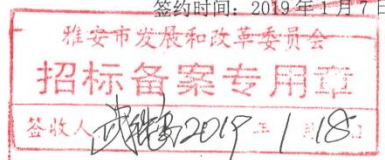 签约时间：2019年1月7日
雅安市发展和改革委员会
招标备案专用章
签收人 武 2019年1月18日